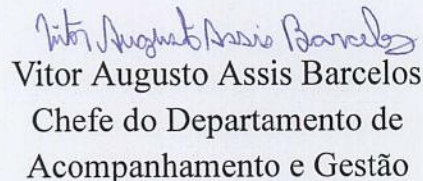 Vitor Augusto Assis Barcelos
Vitor Augusto Assis Barcelos
Chefe do Departamento de
Acompanhamento e Gestão